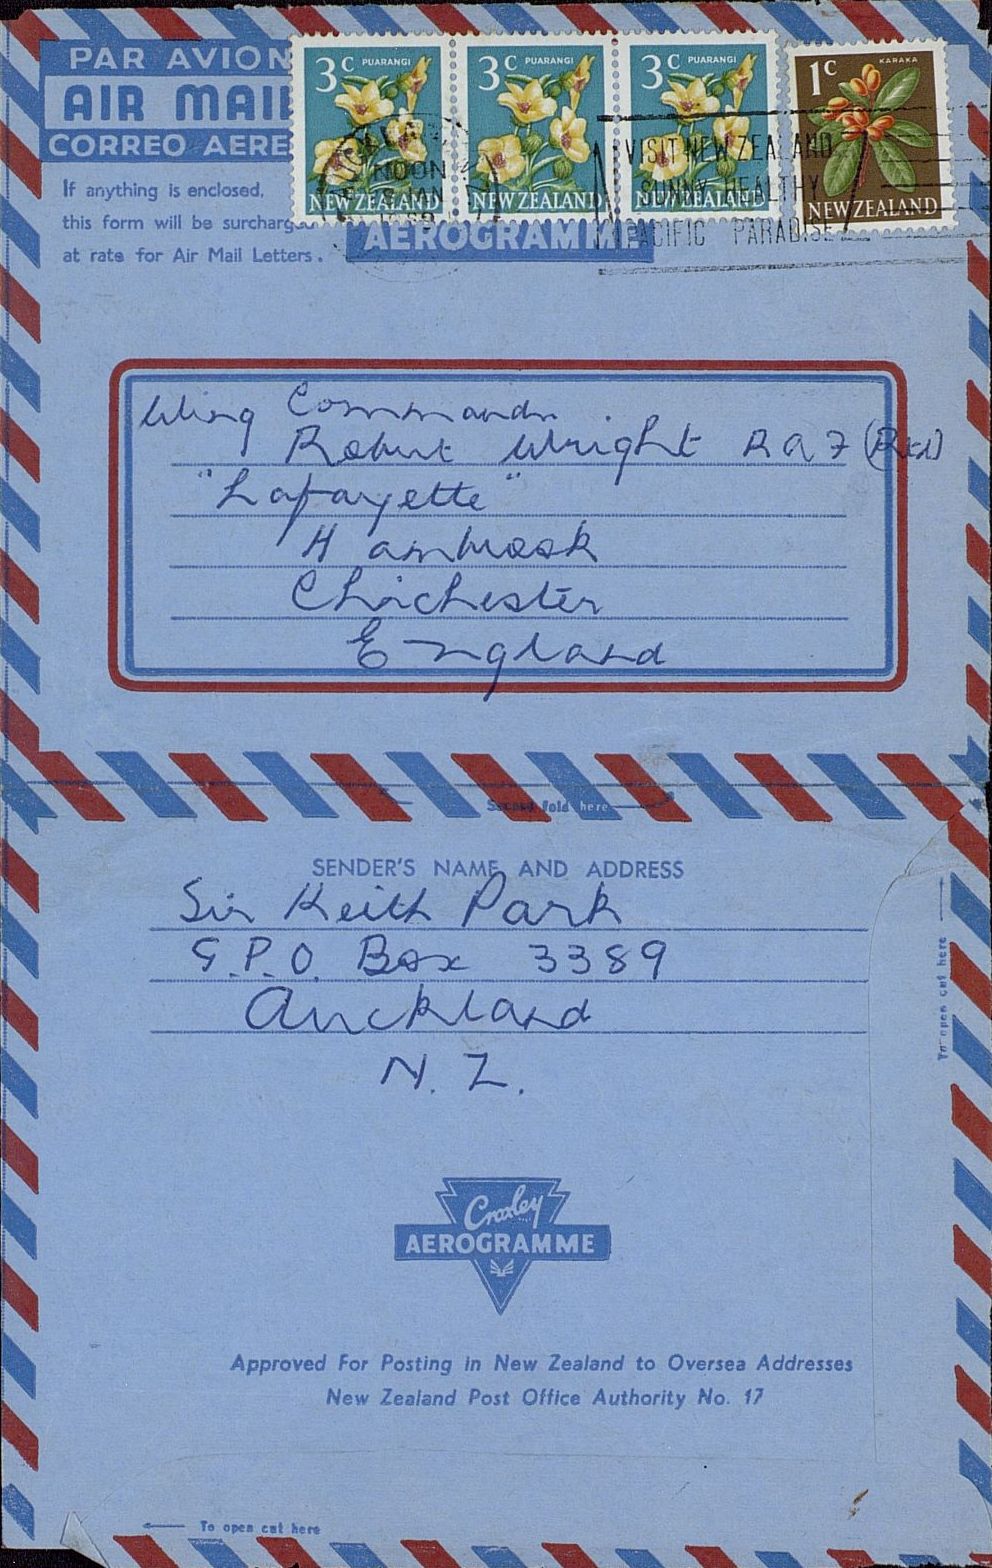 PAR AVION
AIR MAIL
CORREO AERE
If anything is enclosed,
this form will be surcharged
at rate for Air Mail Letters.
3c PUARANGI
NEW ZEALAND
3c PUARANGI
NEW ZEALAND
3c PUARANGI
NEW ZEALAND
1c KARAKA
NEW ZEALAND
NOON
VISIT NEW ZEALAND
SUNNY HEALTHY
PACIFIC PARADISE
AEROGRAMME
Wing Commander
Robert Wright RAF (Rtd)
"Lafayette"
Hambrook
Chichester
England
Second fold here
SENDER'S NAME AND ADDRESS
Sir Keith Park
G.P.O. Box 3389
Auckland
N. Z.
To open cut here
Croxley
AEROGRAMME
Approved For Posting in New Zealand to Oversea Addresses
New Zealand Post Office Authority No. 17
To open cut here